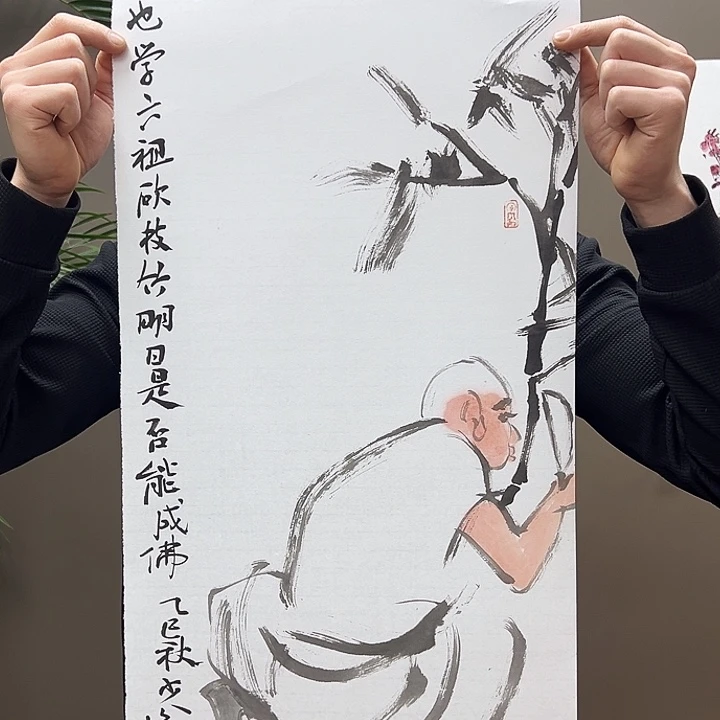 也学六祖砍枝竹明日是否能成佛 乙巳秋